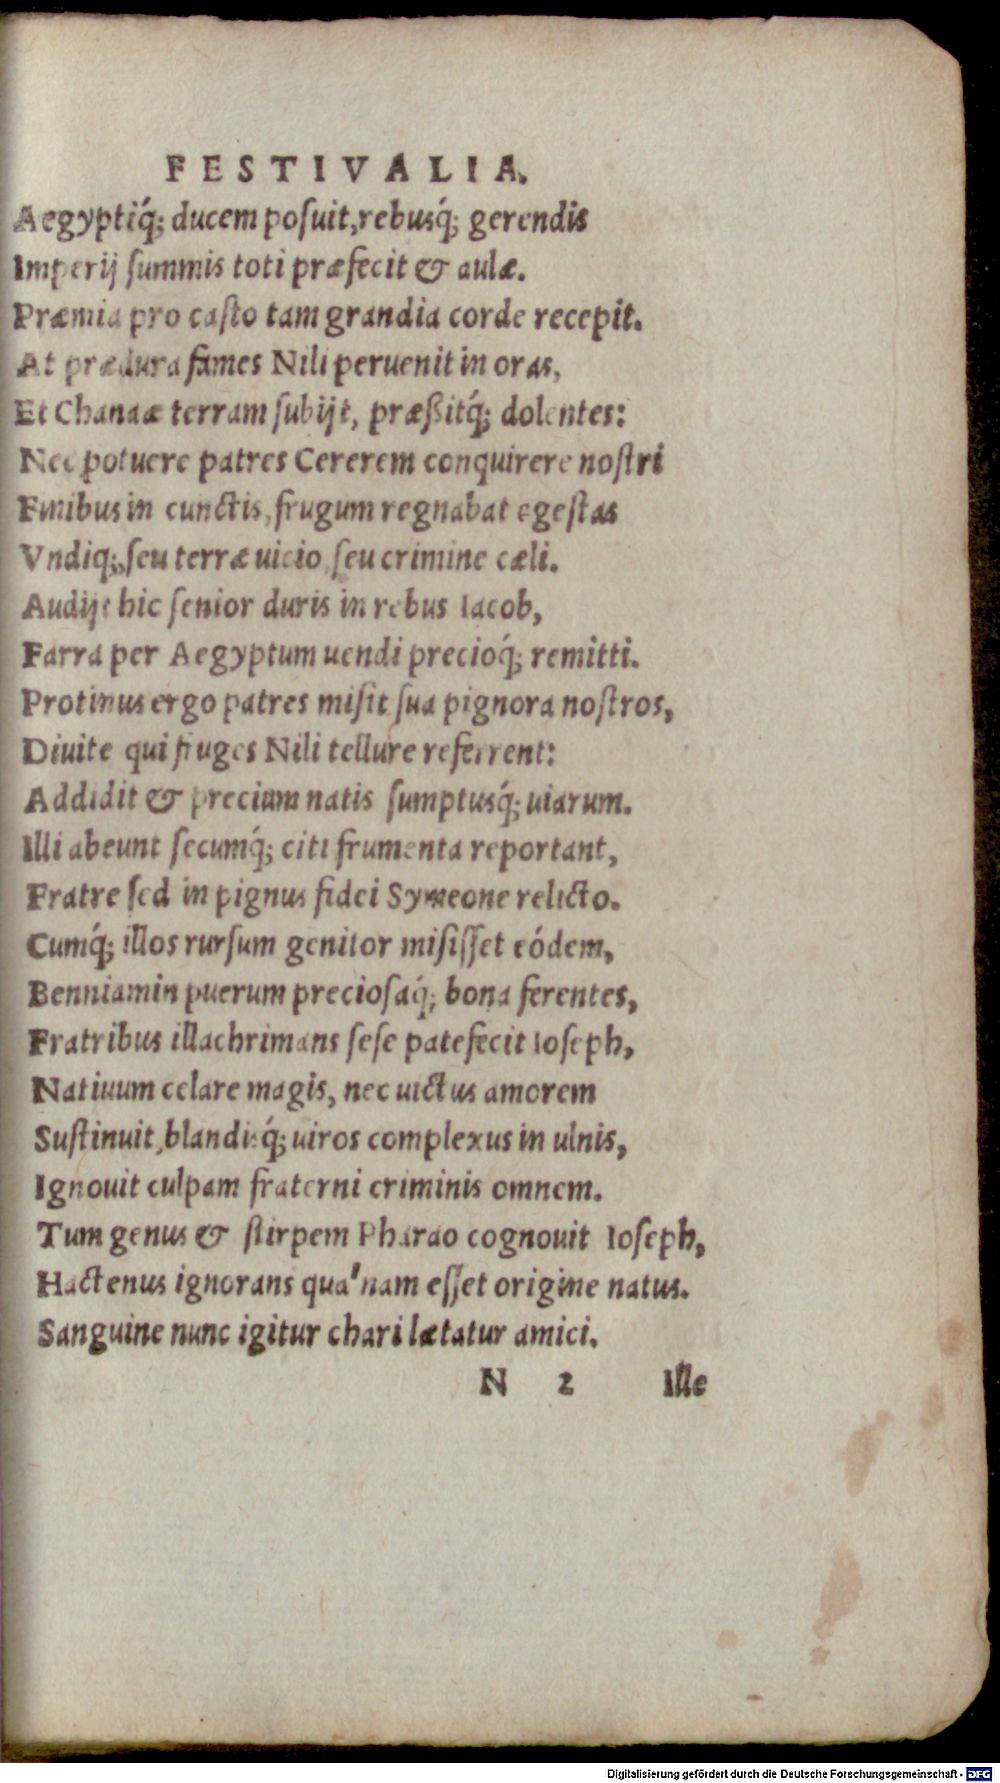 FESTIVALIA.
Aegyptiq́; ducem poſuit, rebusq́; gerendis
Imperij ſummis toti præfecit & aulæ.
Præmia pro caſto tam grandia corde recepit.
At prædura fames Nili peruenit in oras,
Et Chanaæ terram ſubijt, præßitq́; dolentes:
Nec potuere patres Cererem conquirere noſtri
Finibus in cunctis, frugum regnabat egeſtas
Vndiq;, ſeu terræ uicio, ſeu crimine cæli.
Audijt hic ſenior duris in rebus Iacob,
Farra per Aegyptum uendi precioq́; remitti.
Protinus ergo patres miſit ſua pignora noſtros,
Diuite qui fruges Nili tellure referrent:
Addidit & precium natis ſumptusq́; uiarum.
Illi abeunt ſecumq́; citi frumenta reportant,
Fratre ſed in pignus fidei Symeone relicto.
Cumq́; illos rurſum genitor miſiſſet eódem,
Benniamin puerum precioſaq́; bona ferentes,
Fratribus illachrimans ſeſe patefecit Ioſeph,
Natiuum celare magis, nec uictus amorem
Suſtinuit, blandisq́; uiros complexus in ulnis,
Ignouit culpam fraterni criminis omnem.
Tum genus & ſtirpem Pharao cognouit Ioſeph,
Hactenus ignorans qua'nam eſſet origine natus.
Sanguine nunc igitur chari lætatur amici.
N 2 Ille
Digitalisierung gefördert durch die Deutsche Forschungsgemeinschaft - DFG